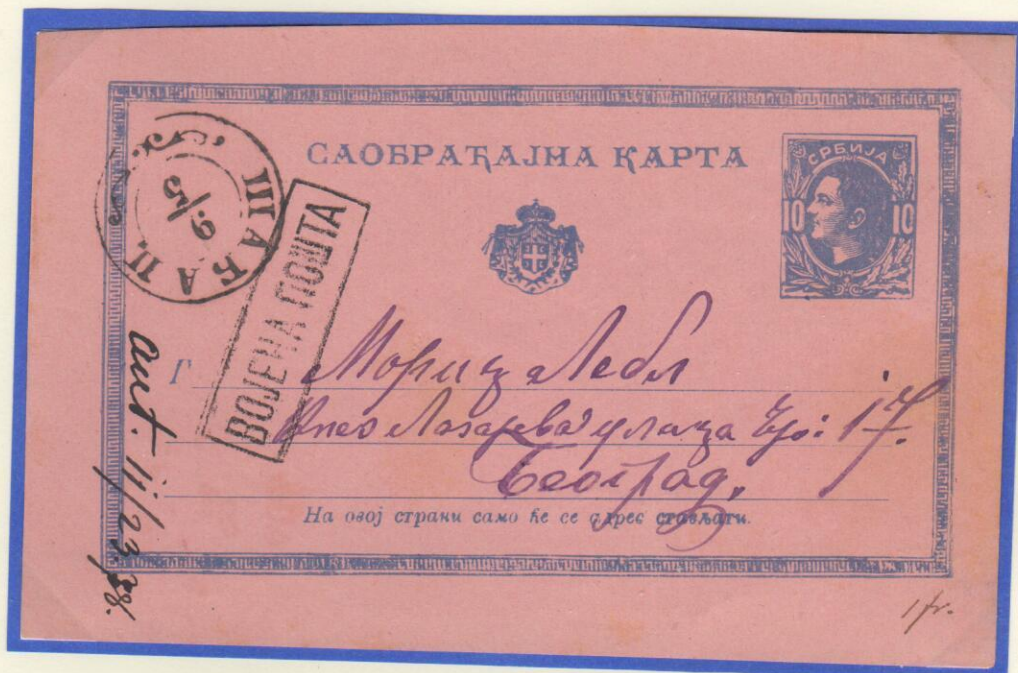 САОБРАЋАЈНА КАРТА
СРБИЈА
10 10
ШАБАЦ
9/5
ВОЈЕНА ПОШТА
Г. Мориц Лебл
Кнез Лазарева улица Број: 17.
Београд.
На овој страни само ће се адрес стављати.
ant. 11/23.88.
1 fr.